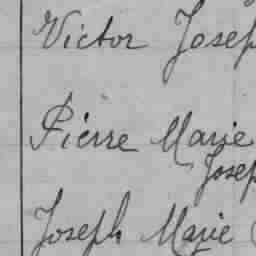 Victor Josep
Pierre Marie
Josep
Joseph Marie